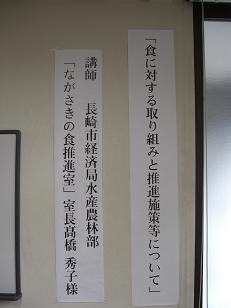 「食に対する取り組みと推進施策等について」
講師　長崎市経済局水産農林部
「ながさきの食推進室」室長髙橋 秀子様